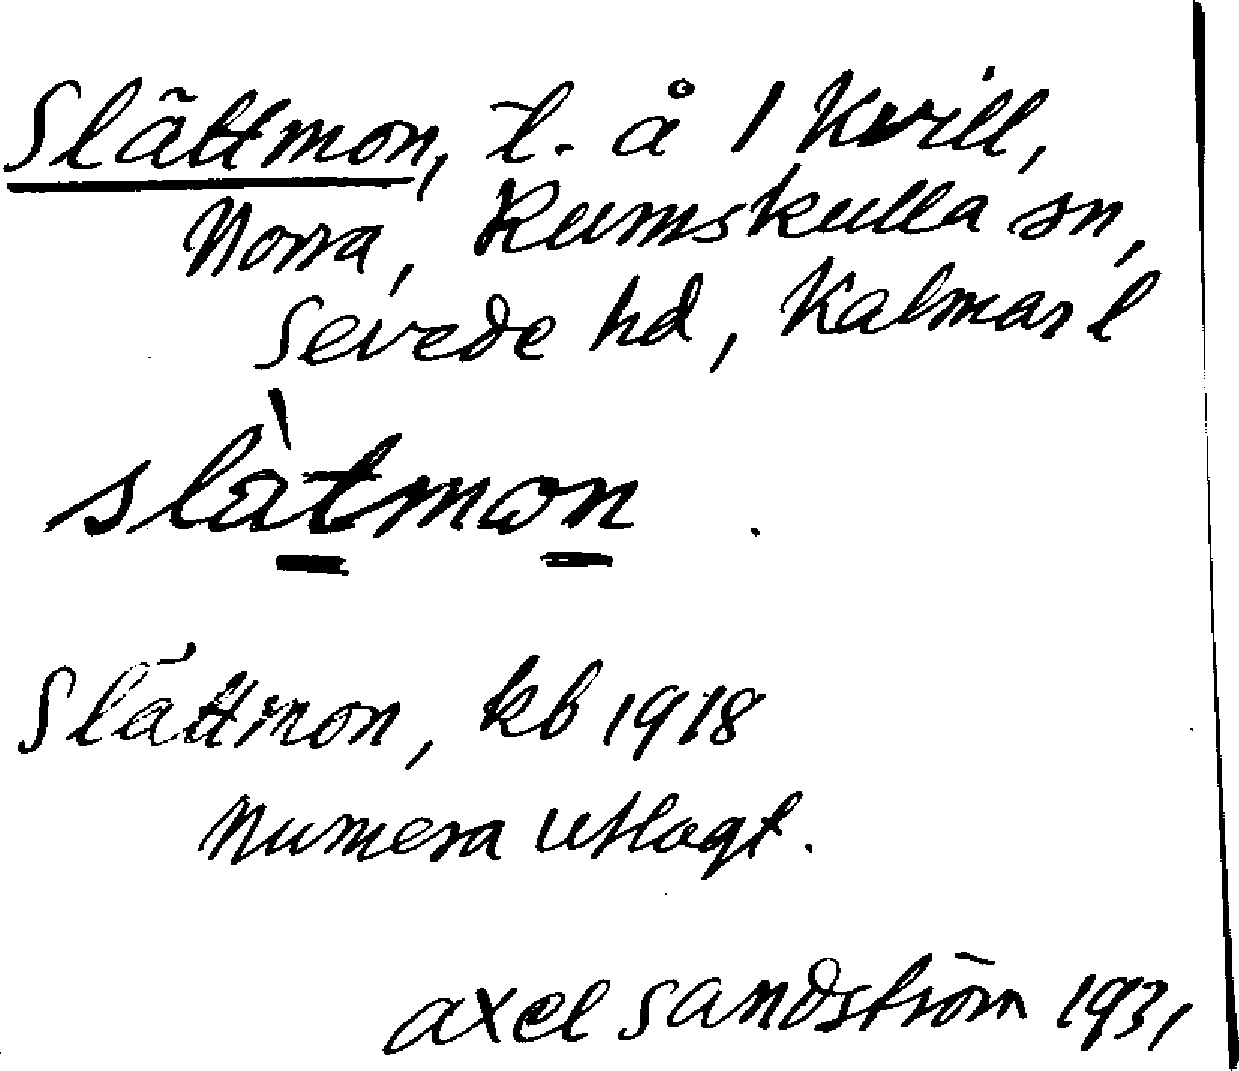 Slättmon, t. å 1 Kvill,
Norra, Rumskulla sn,
Sevede hd, Kalmar l
slàtmon.
Slättmon, kb 1918
Numera utlagt.
Axel Sandström 1931